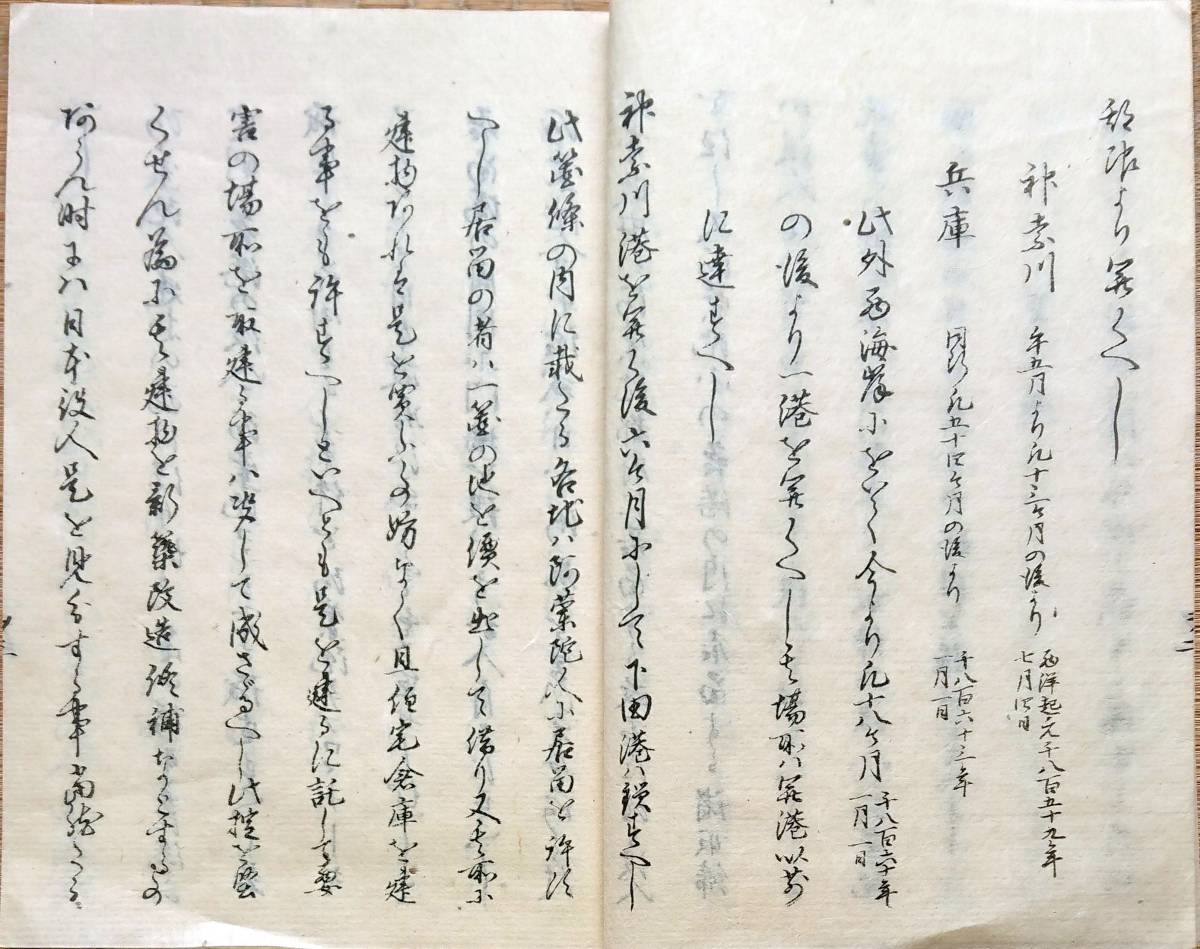 期限より開くへし
神奈川 午五月より凡十三ヶ月の後より 西洋起元千八百五十九年七月四日
兵庫 同断凡五十四ヶ月の後より 千八百六十三年一月一日
此外西海岸において今より凡十八ヶ月 千八百六十年一月一日
の後より一港を開くへし其場所ハ開港以前
に達すへし
神奈川港を開く後六ヶ月にして下田港ハ鎖すへし
此箇條の内に載たる各地ハ阿蘭陀人に居留を許すへ
し居留の者ハ一箇の地を價を出して借り又其所に
建物あれは是を買ふ事妨なく且住宅倉庫を建
る事をも許すへしといへとも是を建るに託して要
害の場所を取建る事ハ決して成さるへし此掟を堅
くせん為に其建物を新築改造修補なとする事
あらん時にハ日本役人是を見分する事当然たるへ